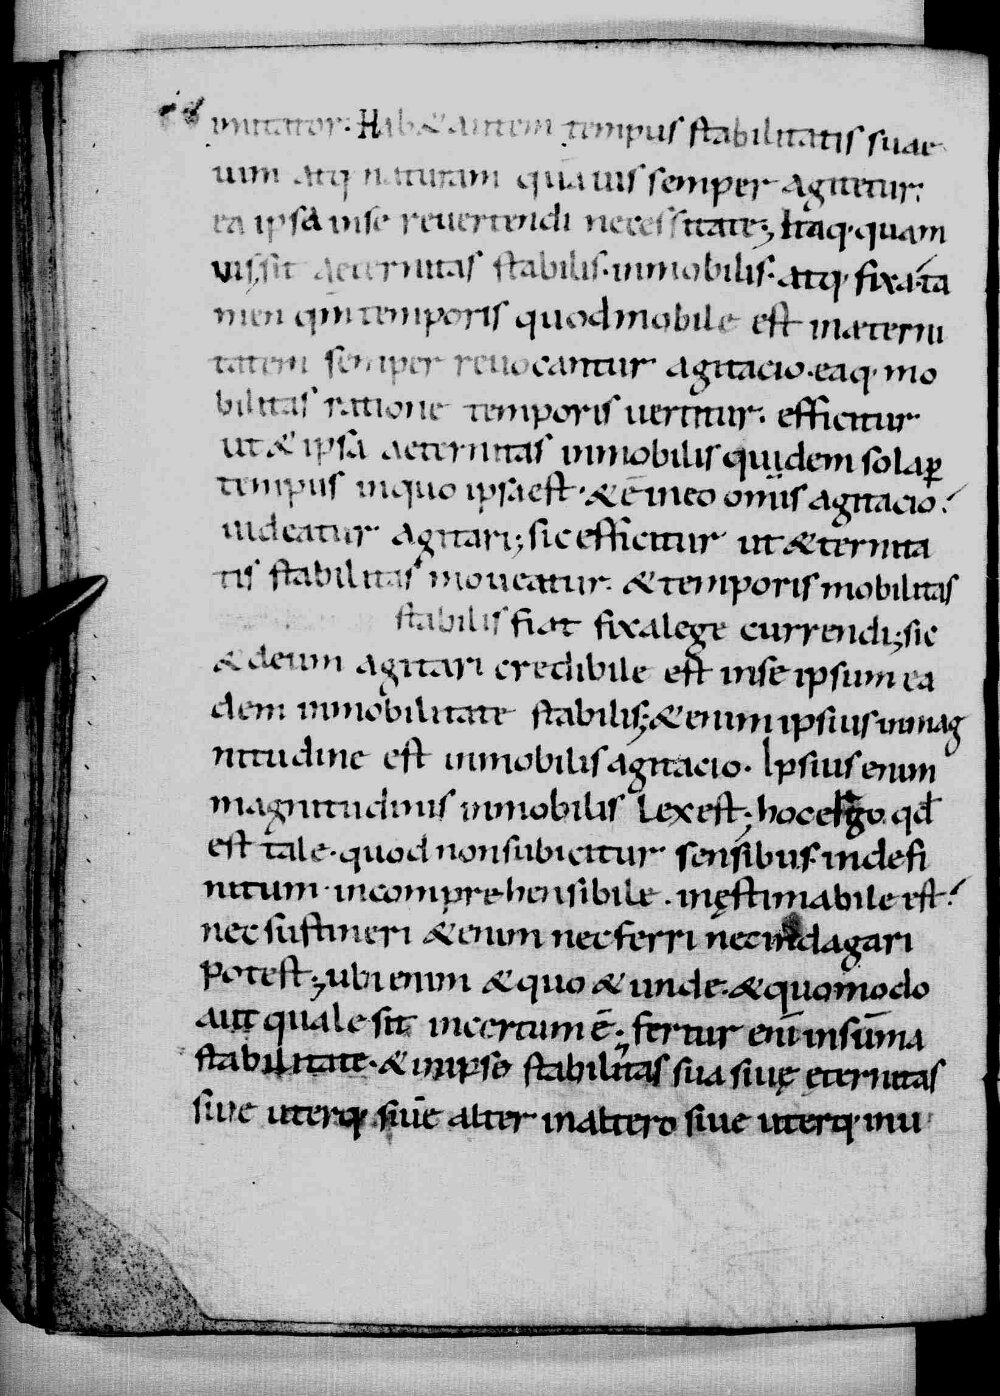 imitator. Hab& autem tempus stabilitatis suae
uim atq; naturam quāuis semper agitetur;
ea ipsa inse reuertendi necessitate; Itaq· quam
uis sit aeternitas stabilis· inmobilis· atq· fixa· ta
men qm̄ temporis quod mobile est in æterni
tatem semper reuocantur agitacio· eaq· mo
bilitas ratione temporis uertitur· efficitur
ut & ipsa aeternitas inmobilis quidem sola ꝑ
tempus inquo ipsa est· & ē ineo omīs agitacio·
uideatur agitari; sic efficitur ut &ternita
tis stabilitas moueatur· & temporis mobilitas
stabilis fiat fixa lege currendi; sic
& deum agitari credibile est inse ipsum ea
dem inmobilitate stabilis; & enim ipsius inmag
nitudine est inmobilis agitacio· Ipsius enim
magnitudinis inmobilis Lex est; hoc ergo qd̄
est tale· quod non subicitur sensibus indefi
nitum· incomprehensibile· inęstimabile est·
nec sustineri & enim nec ferri nec indagari
potest; ubi enim & quo & unde· & quomodo
aut quale sit incertum ē; fertur enī insūma
stabilitate· & inipso stabilitas sua siuę ęternitas
siue uterq; siue alter inaltero siue uterq· inu